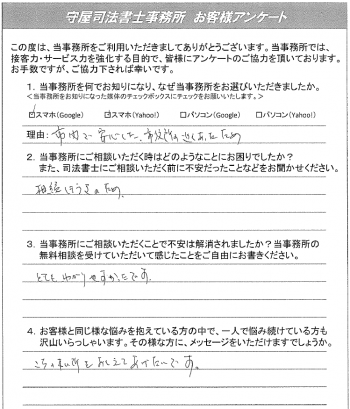 守屋司法書士事務所 お客様アンケート
この度は、当事務所をご利用いただきましてありがとうございます。当事務所では、
接客力・サービス力を強化する目的で、皆様にアンケートのご協力を頂いております。
お手数ですが、ご協力下されば幸いです。
1. 当事務所を何でお知りになり、なぜ当事務所をお選びいただきましたか。
＜当事務所をお知りになった媒体のチェックボックスにチェックをお願いします。＞
☑スマホ(Google) □スマホ(Yahoo!) □パソコン(Google) □パソコン(Yahoo!)
理由: 市内で安心した。 近かったため
2. 当事務所にご相談いただく時はどのようなことにお困りでしたか？
また、司法書士にご相談いただく前に不安だったことなどをお聞かせください。
相続 のため。
3. 当事務所にご相談いただくことで不安は解消されましたか？当事務所の
無料相談を受けていただいて感じたことをご自由にお書きください。
とてもわかりやすかったです。
4. お客様と同じ様な悩みを抱えている方の中で、一人で悩み続けている方も
沢山いらっしゃいます。その様な方に、メッセージをいただけますでしょうか。
をおしえてあげたいです。